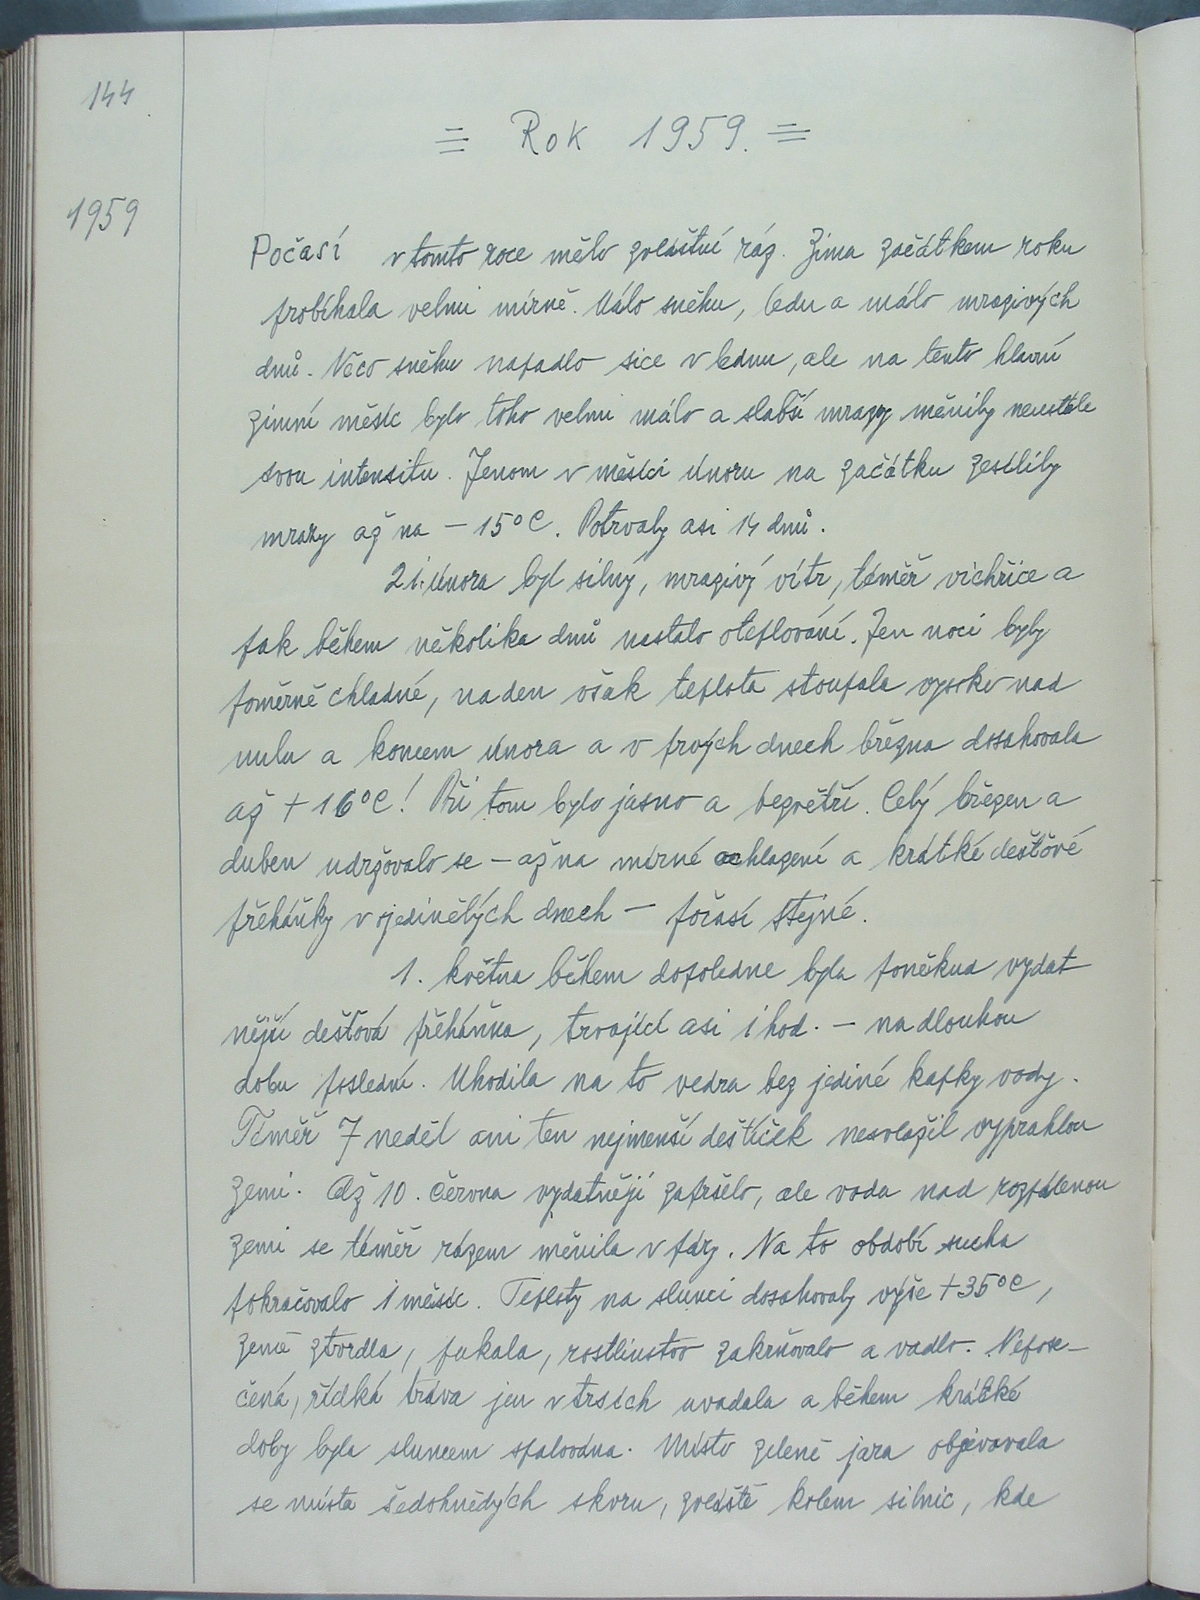 144
= Rok 1959. =
1959
Počasí v tomto roce mělo zvláštní ráz. Zima začátkem roku
probíhala velmi mírně. Málo sněhu, ledu a málo mrazivých
dnů. Něco sněhu napadlo sice v lednu, ale na tento hlavní
zimní měsíc bylo toho velmi málo a slabší mrazy měnily neustále
svou intensitu. Jenom v měsíci únoru na začátku zesílily
mrazy až na – 15°C. Potrvaly asi 14 dnů.
21. února byl silný, mrazivý vítr, téměř vichřice a
pak během několika dnů nastalo oteplování. Jen noci byly
poměrně chladné, na den však teplota stoupala vysoko nad
nulu a koncem února a v prvých dnech března dosahovala
až + 16°C! Při tom bylo jasno a bezvětří. Celý březen a
duben udržovalo se – až na mírné ochlazení a krátké dešťové
přeháňky v ojedinělých dnech – počasí stejné.
1. května během dopoledne byla poněkud vydat-
nější dešťová přeháňka, trvající asi 1 hod. – na dlouhou
dobu poslední. Uhodila na to vedra bez jediné kapky vody.
Téměř 7 neděl ani ten nejmenší deštíček nesvlažil vyprahlou
zemi. Až 10. června vydatněji zapršelo, ale voda nad rozpálenou
zemi se téměř rázem měnila v páry. Na to období sucha
pokračovalo 1 měsíc. Teploty na slunci dosahovaly výše +35°C,
země ztvrdla, pukala, rostlinstvo zakrňovalo a vadlo. Nepose-
čená, řídká tráva jen v trsích uvadala a během krátké
doby byla sluncem spalována. Místo zeleně jara objevovala
se místa šedohnědých skvrn, zvláště kolem silnic, kde